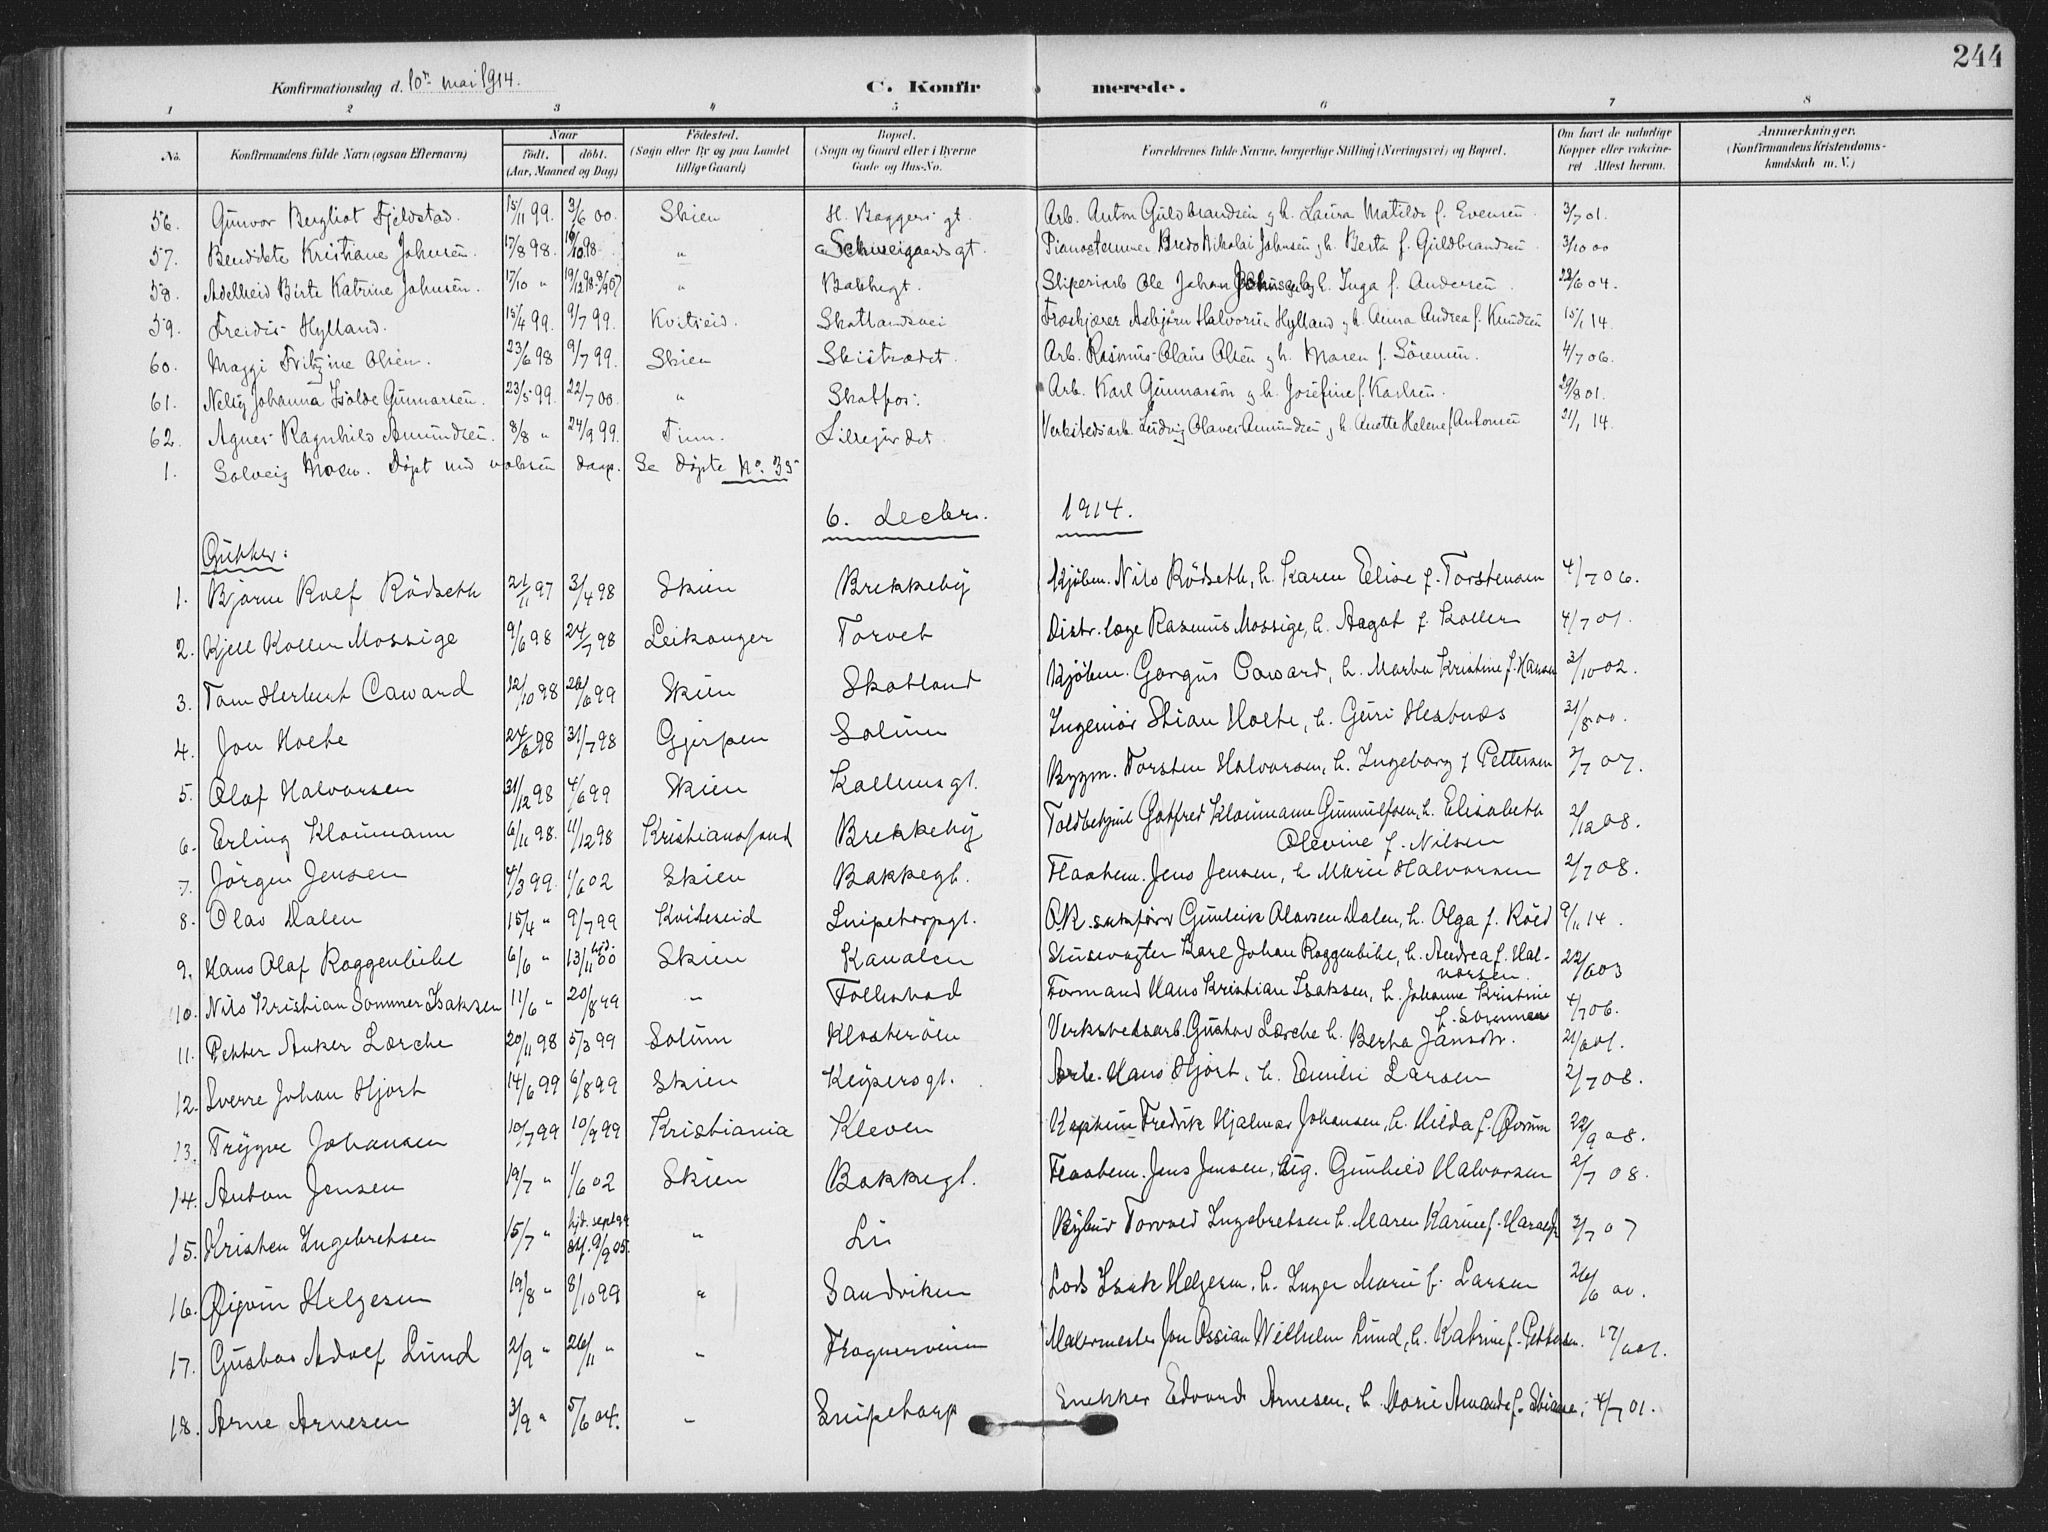 244
Konfirmationsdag d. 10de mai 1914.
C. Konfirmerede.
1 2 3 4 5 6 7 8
No. Konfirmandens fulde Navn (ogsaa Efternavn) Naar födt. döbt. (Aar, Maaned og Dag) Födested. (Sogn eller By og paa Landet tillige Gaard) Bopæl. (Sogn og Gaard eller i Byerne Gade og Hus-No. Forældrenes fulde Navne, borgerlige Stilling (Næringsvei) og Bopæl. Om havt de naturlige Kopper eller vakcineret Attest herom. Anmærkninger. (Konfirmandens Kristendomskundskab m. V.)
56. Gunvor Bergliot Fjeldstad. 15/11 99. 3/6 00. Skien H. Baggers gt. Arb. Anton Guldbrandsen og h. Laura Matilde f. Evensen 3/7 01.
57. Bendikte Kristiane Johnsen. 17/8 98. 16/10 98. " Schweigaards gt. Pianostemmer Bredo Nikolai Johnsen og h. Berta f. Guldbrandsen 3/10 00
58. Adelheid Birte Katrine Johnsen. 17/10 " 19/12 98 " Bakkegt. Sliperiarb Ole Johan Johnsen og h. Inga f. Andersen 22/6 04.
59. Freidis Hylland. 15/4 99. 9/7 99. Kvitseid. Skotlandsvei Træskjærer Asbjørn Halvorsen Hylland og h. Anna Andrea f. Knudsen 15/1 14.
60. Maggi Fritzine Olsen. 23/6 98 9/7 99. Skien Skistrædet. Arb. Rasmus Olaus Olsen og h. Maren f. Sörensen. 4/7 06.
61. Nelsy Johanna Isolde Gunnarsen. 23/5 99. 22/7 00. " Skotfos. Arb. Karl Gunnarson og h. Josefine f. Karlsen. 29/8 01.
62. Agnes Ragnhild Amundsen. 8/8 " 24/9 99. Tinn. Lilrejordet. Verkstedsarb. Ludvig Olaves Amundsen og h. Anette Helene f. Antonsen 21/1 14.
1. Solveig Moen. Døpt ved voksen daap. Se døpte No. 35
6. decbr. 1914.
Gutter:
1. Bjarne Rolf Rödseth 21/11 97 3/4 98 Skien Brekkeby Kjöbm. Nils Rödseth, h. Karen Elise f. Torstensen 4/7 06.
2. Kjell Koller Mossige 9/6 98 24/7 98 Leikanger Torvet Distr. læge Rasmus Mossige, h. Aagot f. Koller 4/7 01.
3. Tom Herbert Caward 12/10 98 26/6 99 Skien Skotland Kjöbm. Gorgus Caward, h. Martha Kristine f. Hansen 3/10 02.
4. Jon Holte 24/6 98 31/7 98 Gjerpen Solum Ingeniör Stian Holte, h. Guri Hestnæs 31/8 00.
5. Olaf Halvorsen 31/12 98 4/6 99 Skien Kallums gt. Bygm. Torsten Halvorsen, h. Ingeborg f. Pettersen 2/7 07.
6. Erling Kloumann 6/11 98. 11/12 98 Kristianssand Brekkeby Toldbetjent Gotfred Kloumann Gunnulfsen, h. Elisabeth
Olevine f. Nilsen 2/12 08.
7. Jörgen Jensen 4/3 99. 1/6 02 Skien Bakkegt. Flaahem. Jens Jensen, h. Marie Halvorsen 2/7 08.
8. Olav Dalen 15/4 " 9/7 99 Kviteseid Snipetorpgt. O.R. sakförer Gunleik Olavsen Dalen, h. Olga f. Röed 9/11 14.
9. Hans Olaf Roggenbihl 6/6 " hjd. 13/11 00 Skien Kanalen Slusevogter Karl Johan Roggenbihl, h. Andrea f. Halvorsen. 22/6 03
10. Nils Kristian Sommer Isaksen 11/6 " 20/8 99 " Follestad Formand Hans Kristian Isaksen, h. Johanne Kristine
f. Sommer 4/7 06.
11. Petter Anker Lærche 20/11 98 5/3 99 Solum Klosteröen Verkstedsarb. Gustav Lærche h. Berta Jansdtr.
12. Sverre Johan Hjort 14/6 99 6/8 99 Skien Keysersgt. Arb. Hans Hjort, h. Emilie Larsen 2/7 08.
13. Trygve Johansen 10/7 99 10/9 99 Kristiania Kleven Kaptein Fredrik Hjalmar Johansen, h. Hilda f. Øvrum 22/9 08.
14. Anton Jensen 19/7 " 1/6 02 Skien Bakkegt. Flaahem. Jens Jensen, Gunhild Halvorsen 2/7 08.
15. Kristen Ingebretsen 15/7 " hjd. sept 99 stf. 9/9 05. " Li Bybud Torvald Ingebretsen h. Maren Karine f. 2/7 07
16. Øivin Helgesen 19/8 " 8/10 99 " Sandviken Lods Isak Helgesen, h. Inger Marie f. Larsen 26/6 00.
17. Gustav Adolf Lund 2/9 " 26/11 " " Frognerveien Malermester Jon Ossian Wilhelm Lund, h. Katrine f. Pettersen.
18. Arne Arnesen 3/9 " 5/6 04. " Snipetorp Snekker Edvard Arnesen, h. Marie Amanda f. 4/7 01.